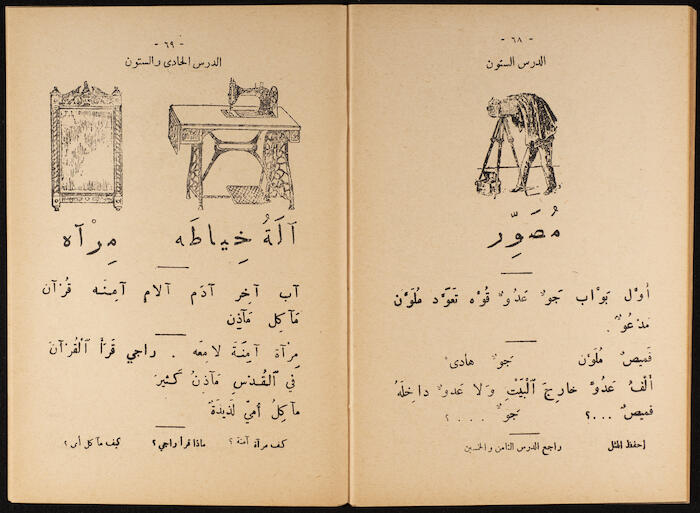 - ٦٨ -
الدرس الستون
مُصَوِّر
أوّل بَوّاب جَوٌّ عَدُوٌّ قُوّه تَعَوَّد مُلَوَّن
مَدْعُوٌّ .
قَميصٌ مُلَوَّن جَوٌّ هادىٌ
أَلْفُ عَدُوٍّ خارِجَ اَلْبَيْتِ وَلا عَدوٌّ داخِلَهُ
قميصٌ ...؟ جَوٌّ ... ؟
احفظ المثل راجع الدرس الثامن والخمسين
- ٦٩ -
الدرس الحادي والستون
آلَةُ خِياطَه مِرْآه
آب آخِر آدَم آلام آمِنَه قُرْآن
مَآكِل مَآذِن
مِرْآةُ آمِنَةَ لامِعَه . راجي قَرَأَ اَلْقُرْآنَ
في اَلْقُدْسِ مَآذِنُ كَثيرَةٌ
مَآكِلُ أُمّي لَذيذَةٌ
كيف مرآة آمنة ؟ ماذا قرأ راجي ؟ كيف مآكل أمي ؟